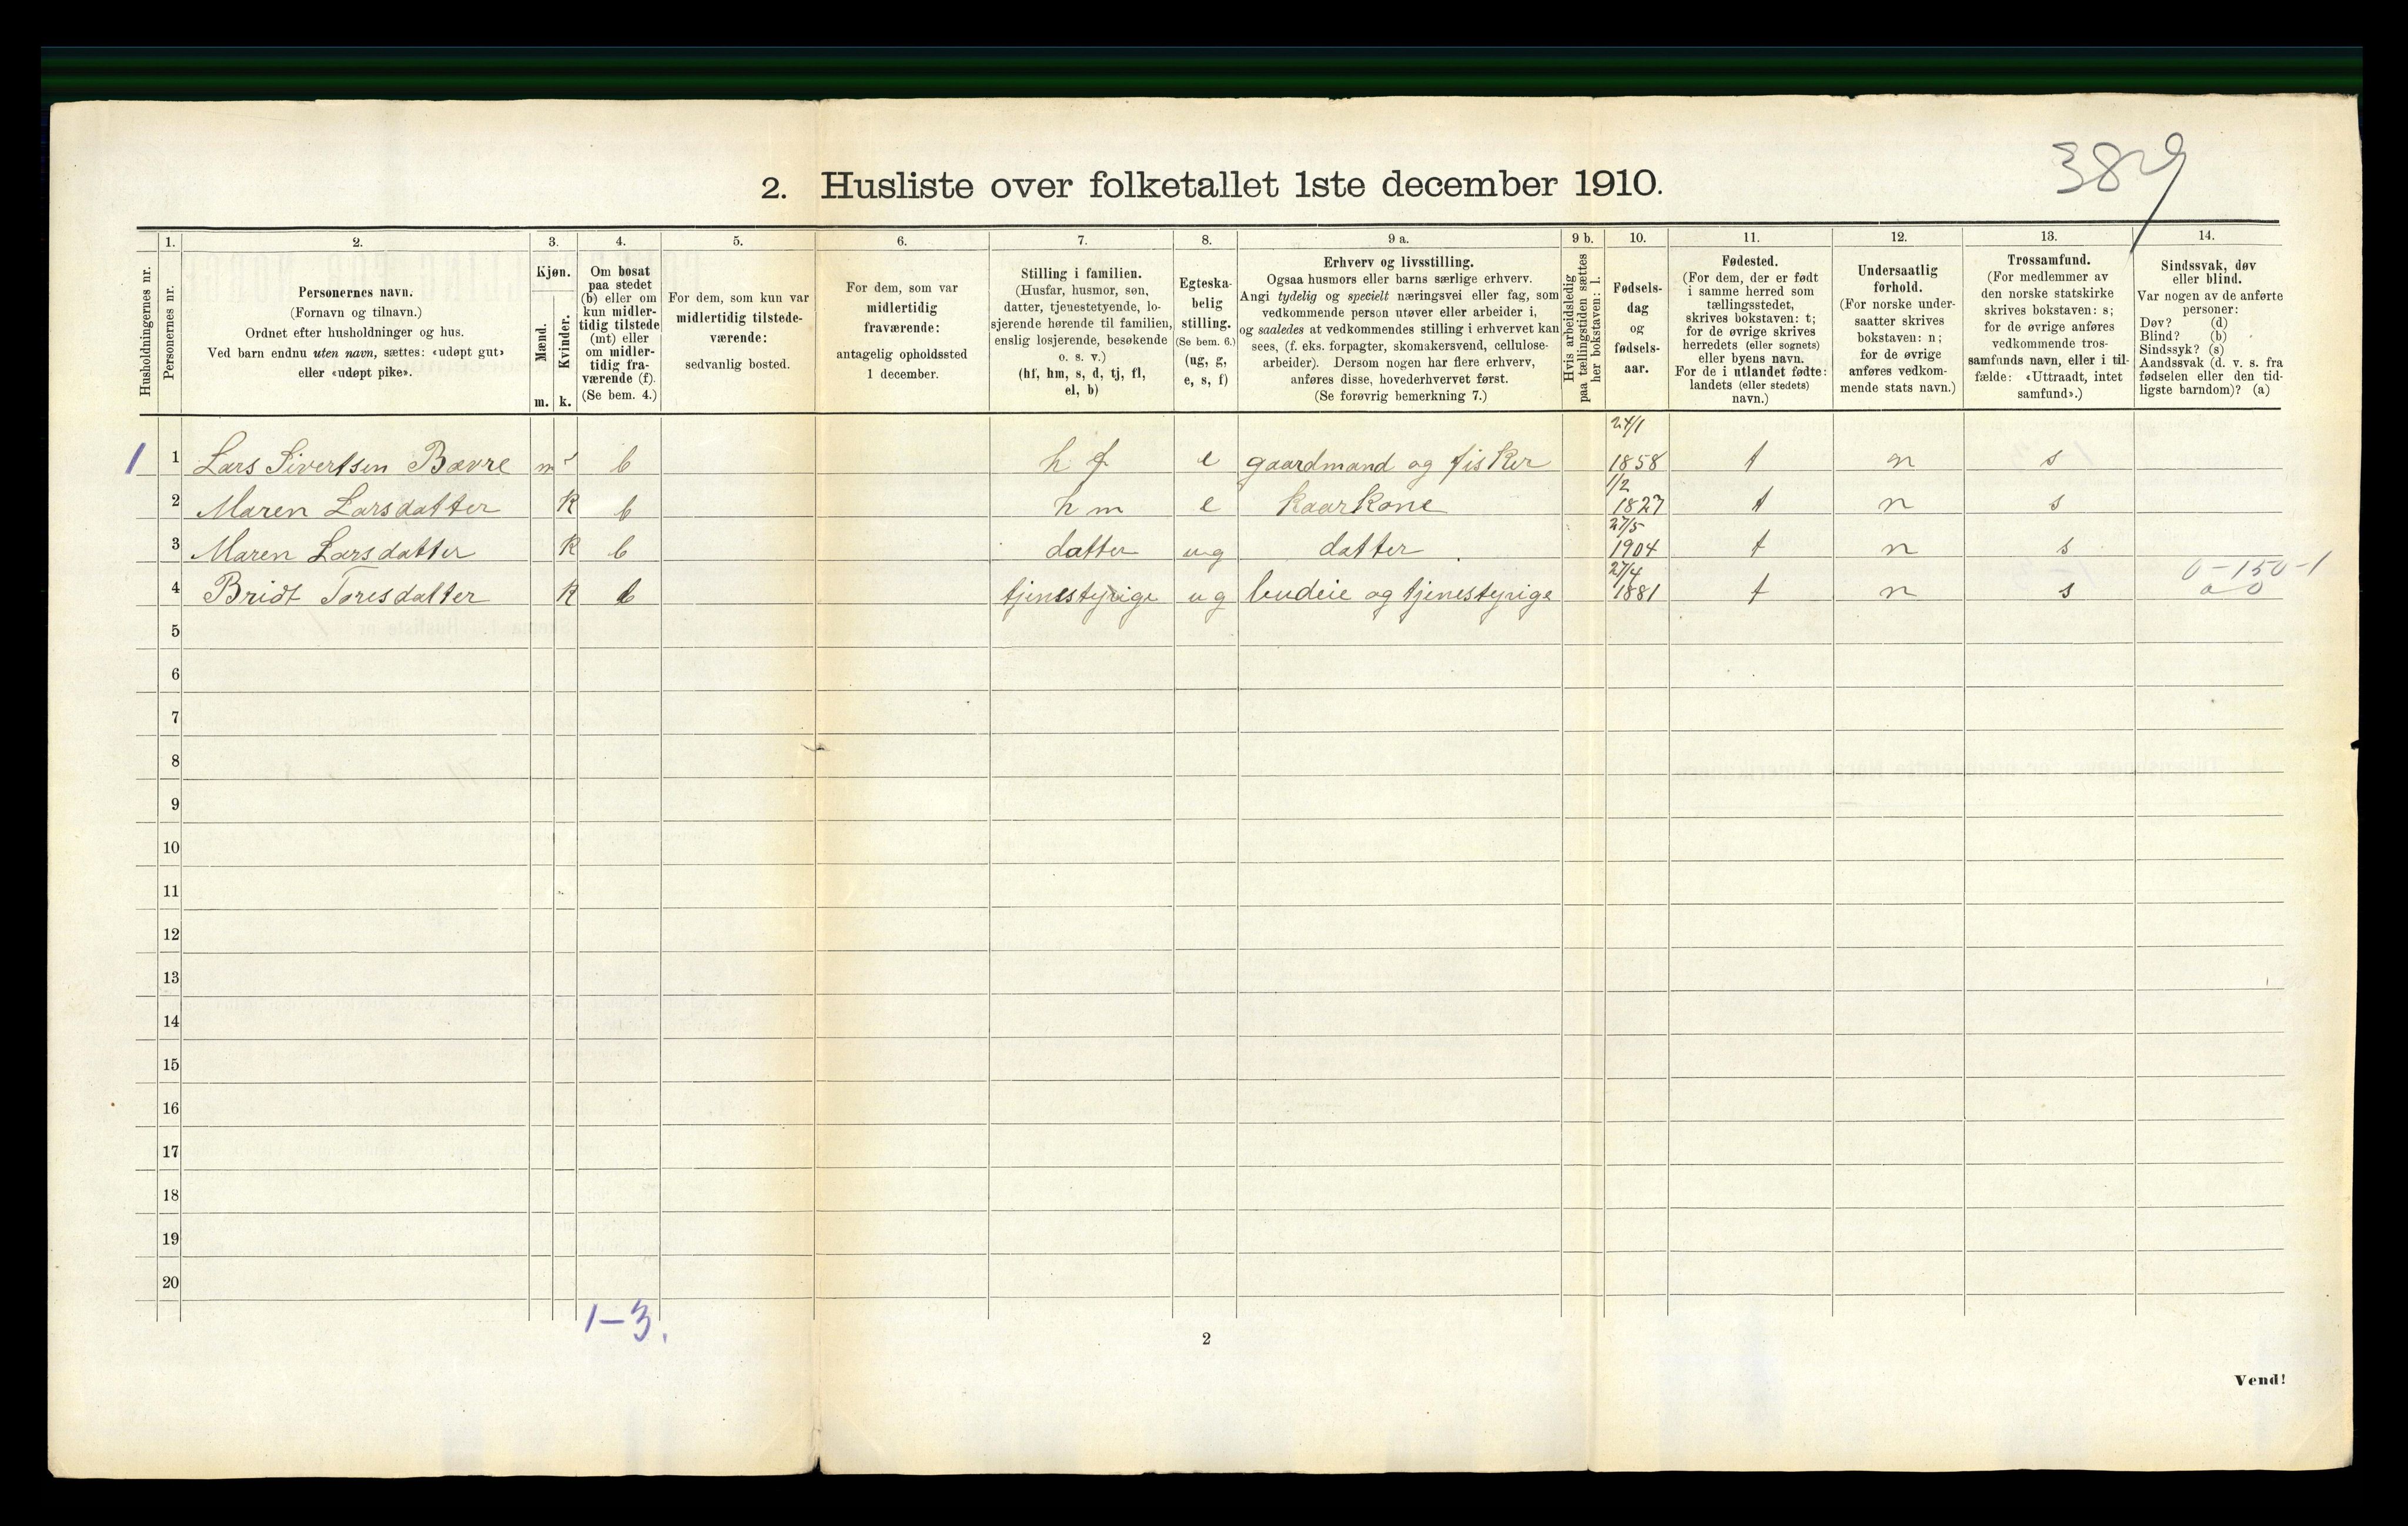 389
2. Husliste over folketallet 1ste december 1910.
Husholdningernes nr.
1.
Personernes nr.
2.
Personernes navn.
(Fornavn og tilnavn.)
Ordnet efter husholdninger og hus.
Ved barn endnu uten navn, sættes: «udøpt gut»
eller «udøpt pike».
3.
Kjøn.
Mænd.
Kvinder.
m. k.
4.
Om bosat
paa stedet
(b) eller om
kun midler-
tidig tilstede
(mt) eller
om midler-
tidig fra-
værende (f).
(Se bem. 4.)
5.
For dem, som kun var
midlertidig tilstede-
værende:
sedvanlig bosted.
6.
For dem, som var
midlertidig
fraværende:
antagelig opholdssted
1 december.
7.
Stilling i familien.
(Husfar, husmor, søn,
datter, tjenestetyende, lo-
sjerende hørende til familien,
enslig losjerende, besøkende
o. s. v.)
(hf, hm, s, d, tj, fl,
el, b)
8.
Egteska-
belig
stilling.
(Se bem. 6.)
(ug, g,
e, s, f)
9 a.
Erhverv og livsstilling.
Ogsaa husmors eller barns særlige erhverv.
Angi tydelig og specielt næringsvei eller fag, som
vedkommende person utøver eller arbeider i,
og saaledes at vedkommendes stilling i erhvervet kan
sees, (f. eks. forpagter, skomakersvend, cellulose-
arbeider). Dersom nogen har flere erhverv,
anføres disse, hovederhvervet først.
(Se forøvrig bemerkning 7.)
9 b.
Hvis arbeidsledig
paa tællingstiden sættes
her bokstaven: l.
10.
Fødsels-
dag
og
fødsels-
aar.
11.
Fødested.
(For dem, der er født
i samme herred som
tællingsstedet,
skrives bokstaven: t;
for de øvrige skrives
herredets (eller sognets)
eller byens navn.
For de i utlandet fødte:
landets (eller stedets)
navn.)
12.
Undersaatlig
forhold.
(For norske under-
saatter skrives
bokstaven: n;
for de øvrige
anføres vedkom-
mende stats navn.)
13.
Trossamfund.
(For medlemmer av
den norske statskirke
skrives bokstaven: s;
for de øvrige anføres
vedkommende tros-
samfunds navn, eller i til-
fælde: «Uttraadt, intet
samfund».)
14.
Sindssvak, døv
eller blind.
Var nogen av de anførte
personer:
Døv? (d)
Blind? (b)
Sindssyk? (s)
Aandssvak (d. v. s. fra
fødselen eller den tid-
ligste barndom)? (a)
1 1 Lars Sivertsen Bævre m b h f e gaardmand og fisker 24/1 1858 t n s
2 Maren Larsdatter k b h m e kaarkone 1/2 1827 t n s
3 Maren Larsdatter k b datter ug datter 27/5 1904 t n s
4 Bridt Toresdatter k b tjenestepige ug budeie og tjenestepige 27/4 1881 t n s 0-150-1
5
6
7
8
9
10
11
12
13
14
15
16
17
18
19
20
1-3.
2
Vend!